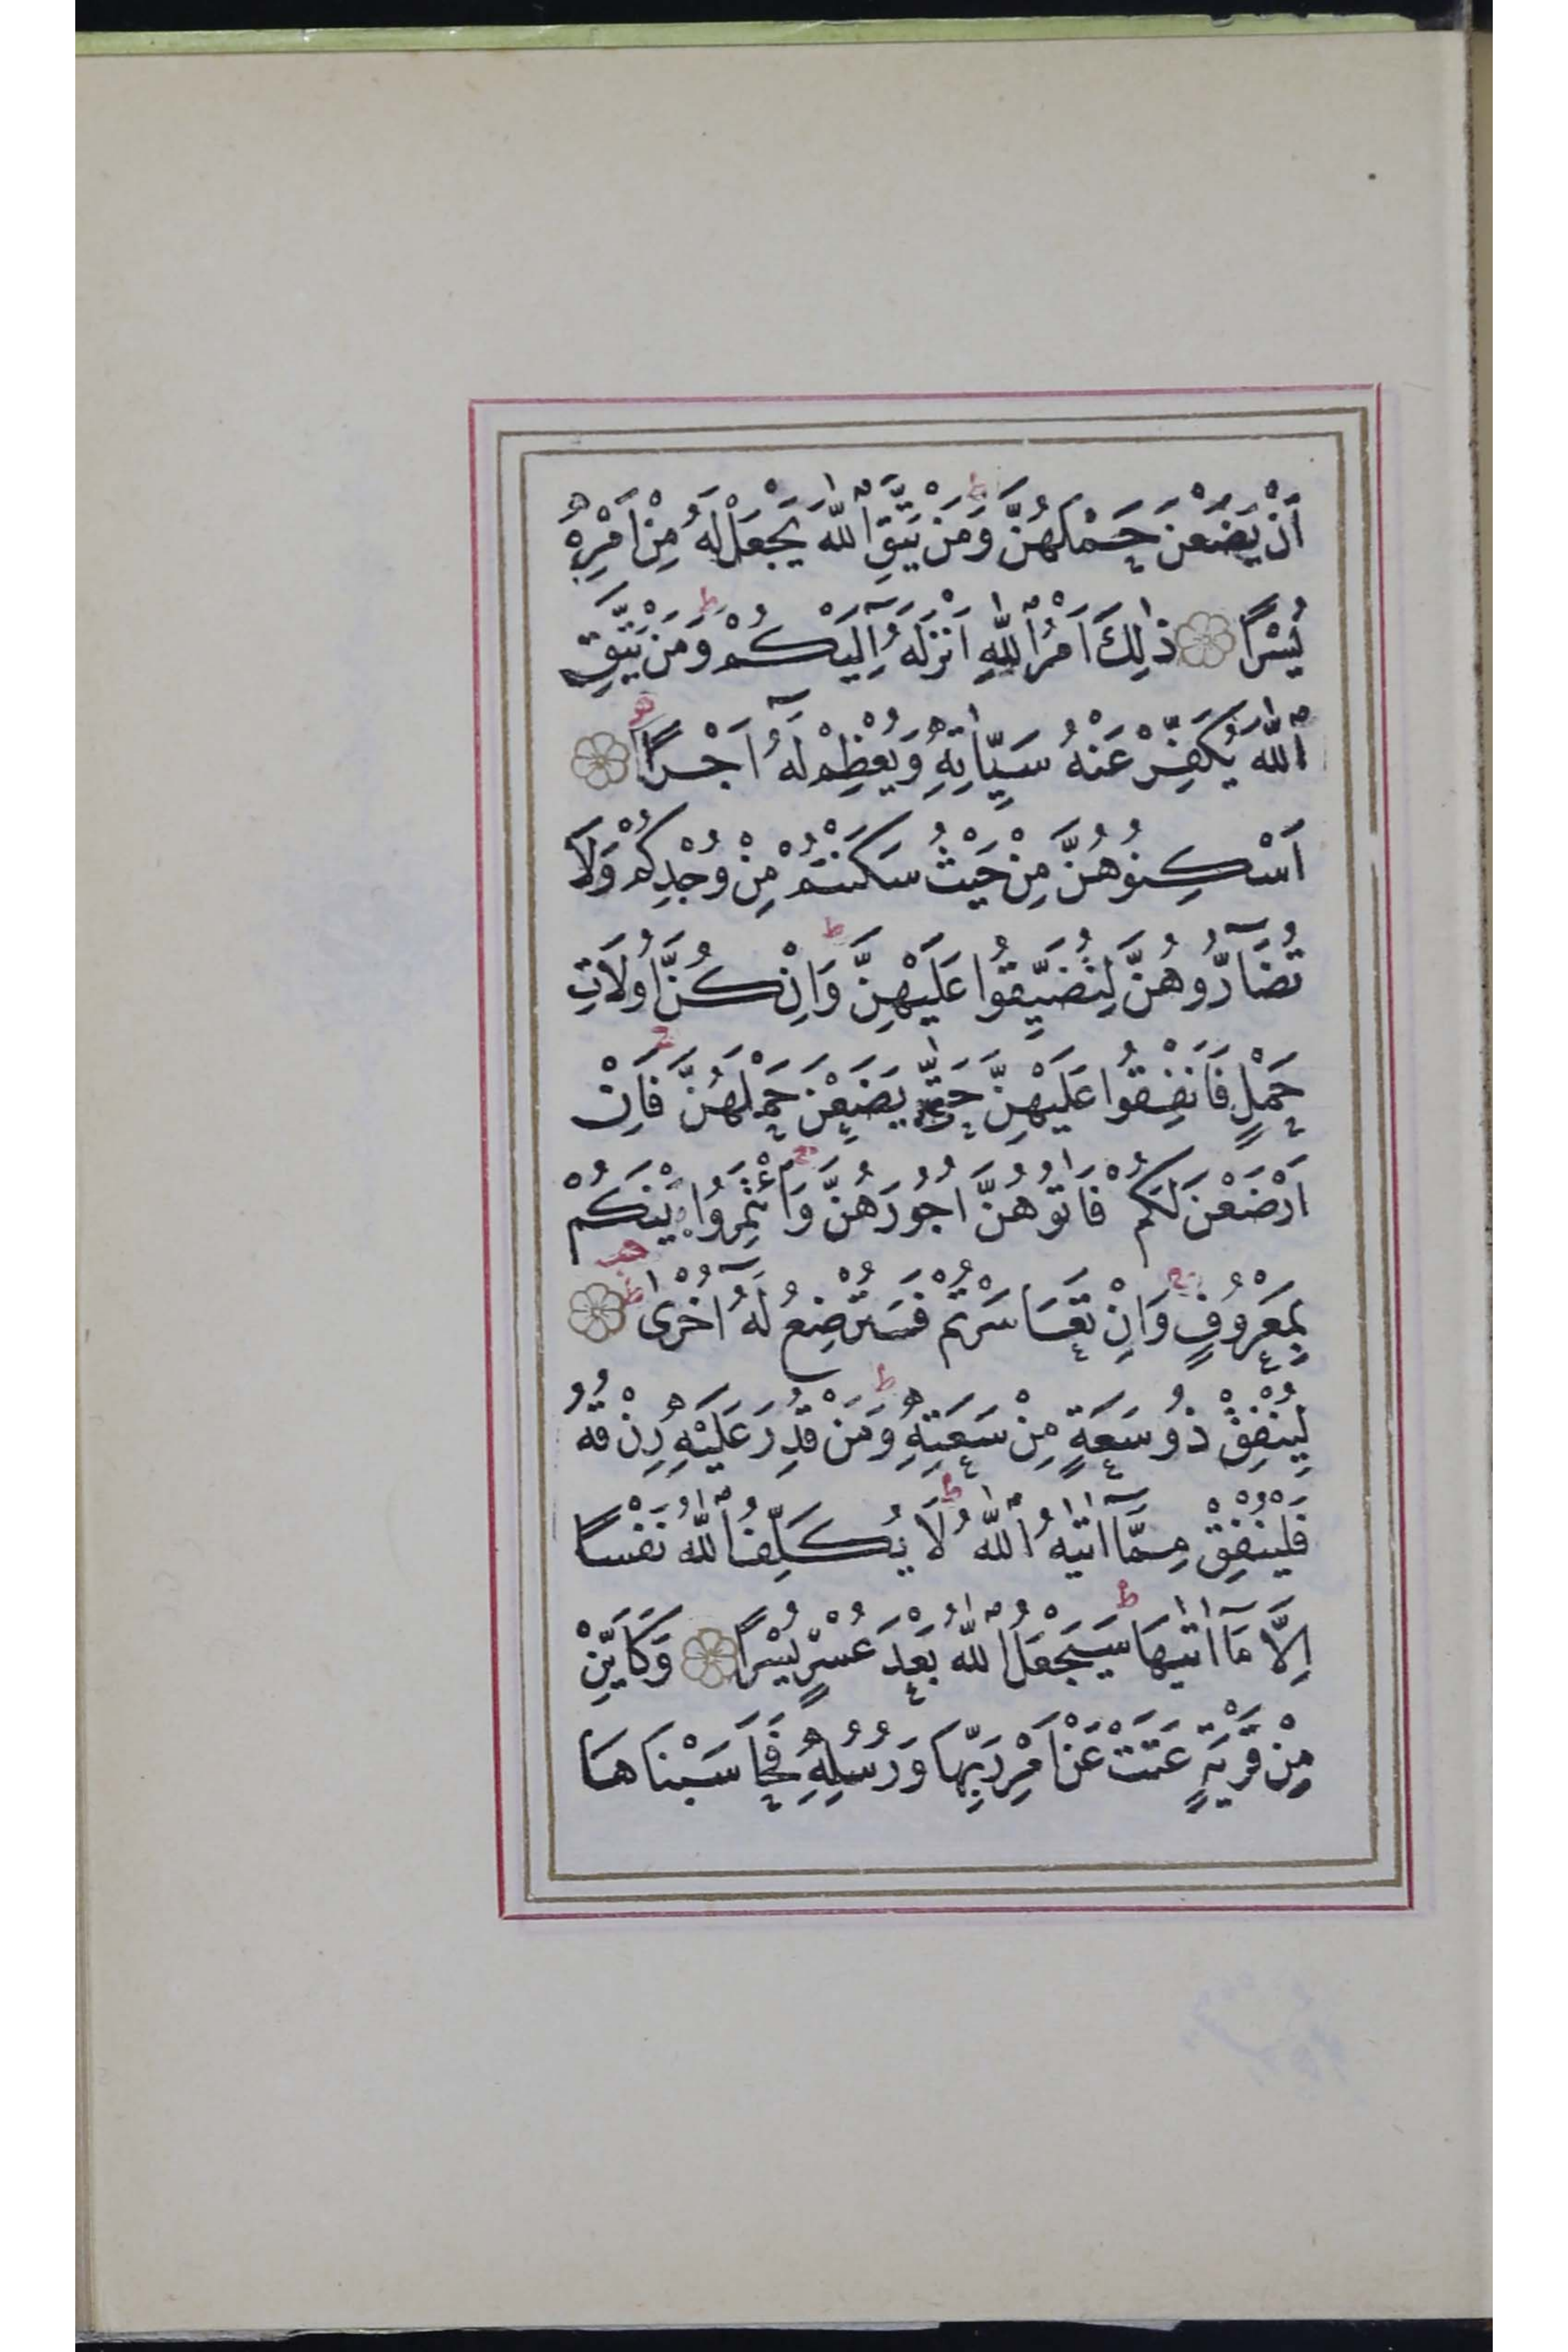 اَنْ يَضَعْنَ حَمْلَهُنَّ وَمَنْ يَتَّقِ ٱللّٰهَ يَجْعَلْ لَهُ مِنْ اَمْرِهِ
يُسْرًا ذٰلِكَ اَمْرُ ٱللّٰهِ اَنْزَلَهُٓ اِلَيْكُمْ وَمَنْ يَتَّقِ
ٱللّٰهَ يُكَفِّرْ عَنْهُ سَيِّاٰتِهِ وَيُعْظِمْ لَهُٓ اَجْرًا
اَسْكِنُوهُنَّ مِنْ حَيْثُ سَكَنْتُمْ مِنْ وُجْدِكُمْ وَلَا
تُضَآرُّوهُنَّ لِتُضَيِّقُوا عَلَيْهِنَّ وَاِنْ كُنَّ اُولَاتِ
حَمْلٍ فَاَنْفِقُوا عَلَيْهِنَّ حَتّٰى يَضَعْنَ حَمْلَهُنَّ فَاِنْ
اَرْضَعْنَ لَكُمْ فَاٰتُوهُنَّ اُجُورَهُنَّ وَأْتَمِرُوا بَيْنَكُمْ
بِمَعْرُوفٍ وَاِنْ تَعَاسَرْتُمْ فَسَتُرْضِعُ لَهُٓ اُخْرٰى
لِيُنْفِقْ ذُو سَعَةٍ مِنْ سَعَتِهِ وَمَنْ قُدِرَ عَلَيْهِ رِزْقُهُ
فَلْيُنْفِقْ مِمَّٓا اٰتٰيهُ ٱللّٰهُ لَا يُكَلِّفُ ٱللّٰهُ نَفْسًا
اِلَّا مَٓا اٰتٰيهَا سَيَجْعَلُ ٱللّٰهُ بَعْدَ عُسْرٍ يُسْرًا وَكَاَيِّنْ
مِنْ قَرْيَةٍ عَتَتْ عَنْ اَمْرِ رَبِّهَا وَرُسُلِهِ فَحَاسَبْنَاهَا